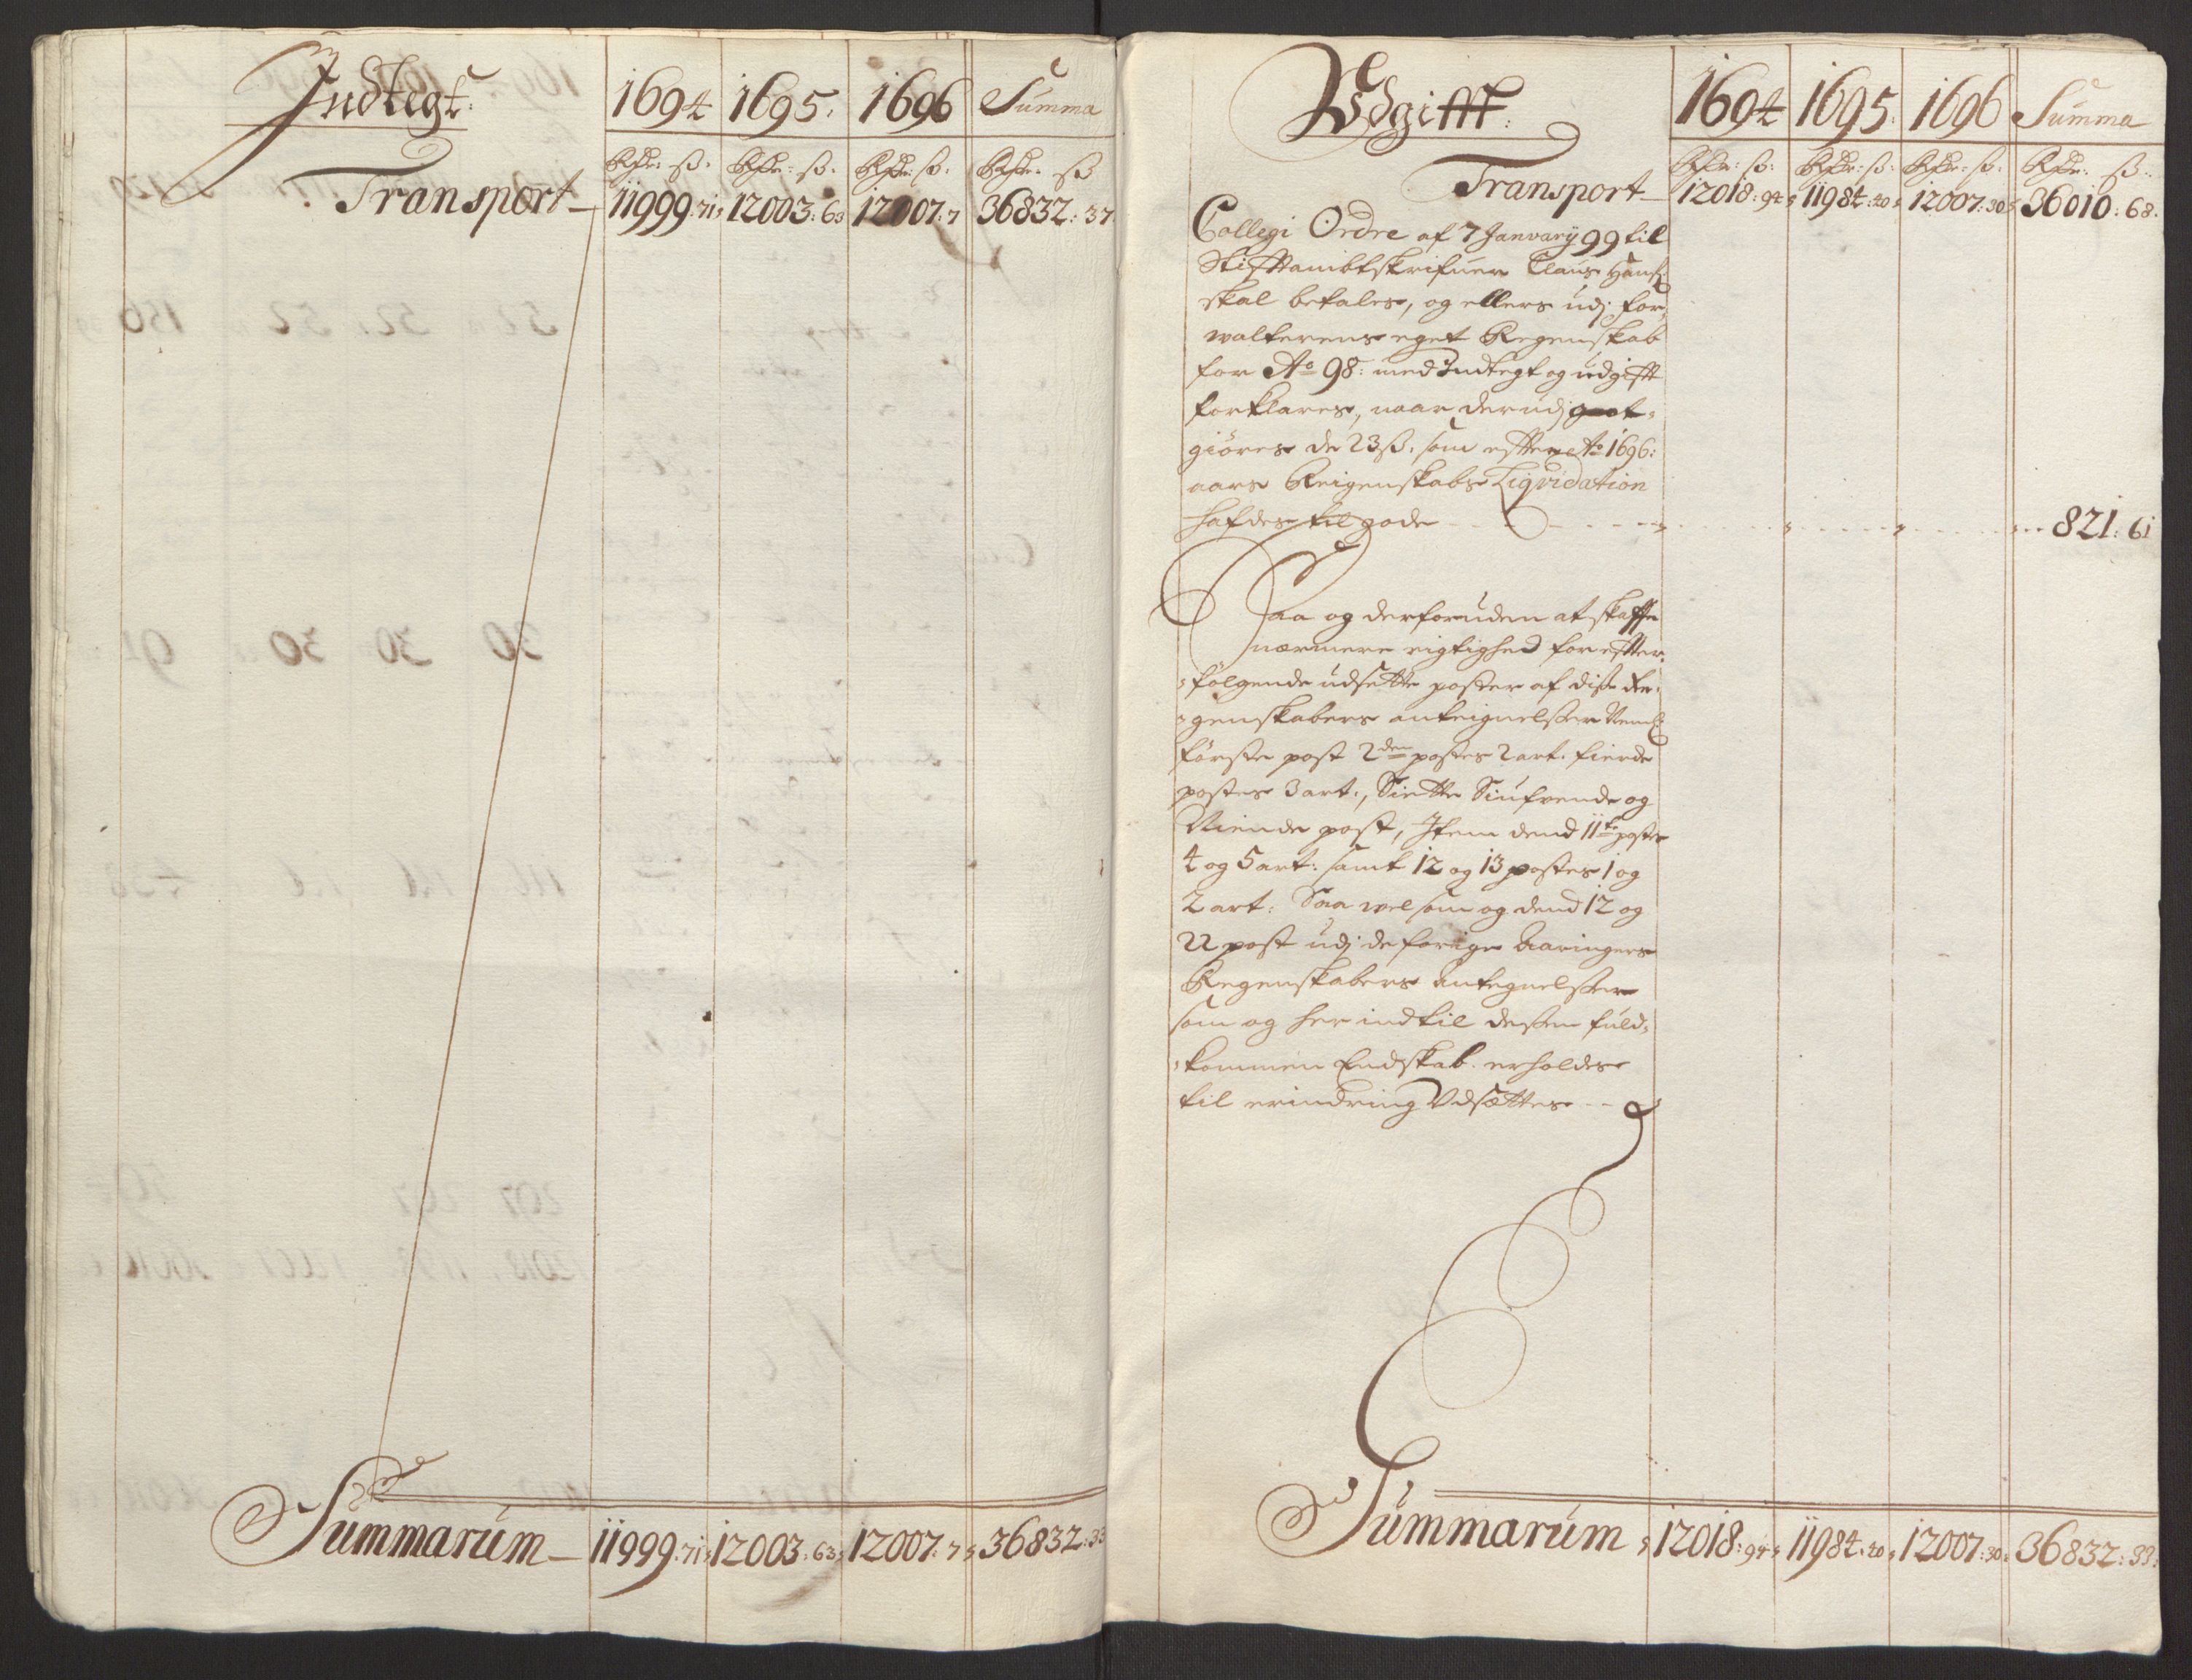 Indtegt: 1694 1695. 1696 Summa
Rdr: ß. Rdr: ß. Rdr: ß. Rdr. ß
Transport 11999:71 12003:63 12007:7 36832:37
Summarum 11999:71 12003:63 12007:7 36832:33
Udgifft: 1694 1695. 1696 Summa
Rdr: ß: Rdr: ß: Rdr: ß. Rdr: ß.
Transport 12018:94 11984:20 12007:30 36010:68.
Collegi Ordre af 7 January 99 til
Stifftambtskrifuer Claus Hanß:
skal betales, og ellers udj for,
walterens eget Regenskab
for Ao 98: med Indtegt og udgifft
forklares, naar derudj got,
giøres de 23ß. som effter Ao 1696:
aars Reigenskabs Liqvidation
hafdes til gode 821:61
Saa og derforuden at skaffe
nærmere rigtighed for effter,
følgende udsatte poster af diße Re,
genskabers anteignelßer Neml:
første post 2den postes 2 art. fierde
postes 3 art:, Siette Siufvende og
Niende post, Item dend 11te postes
4 og 5 art: samt 12 og 13 postes 1 og
2 art: Saa vel som og dend 12 og
22 post udj de forige Aaringers
Regenskabers Antegnelßer
som og her indtil deßen fuld,
kommen Endskab erholdes
til erindring Udsættes
Summarum 12018:94 11984:20 12007:30 36832:33: